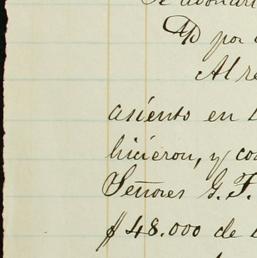 Se
P por
Al re
asiento en
hicieron, y co
Señores G. F.
$48.000 de